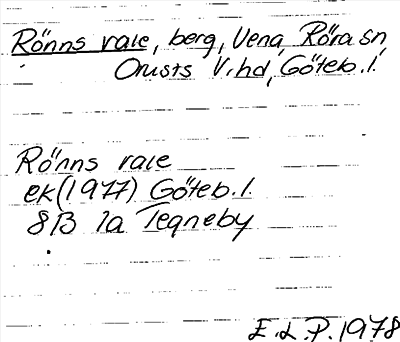 Rönns vale, berg, Vena, Röra sn,
Orusts V. hd, Göteb. l.
Rönns vale
ek (1977) Göteb. l.
8B 1a Tegneby
E.L.P. 1978